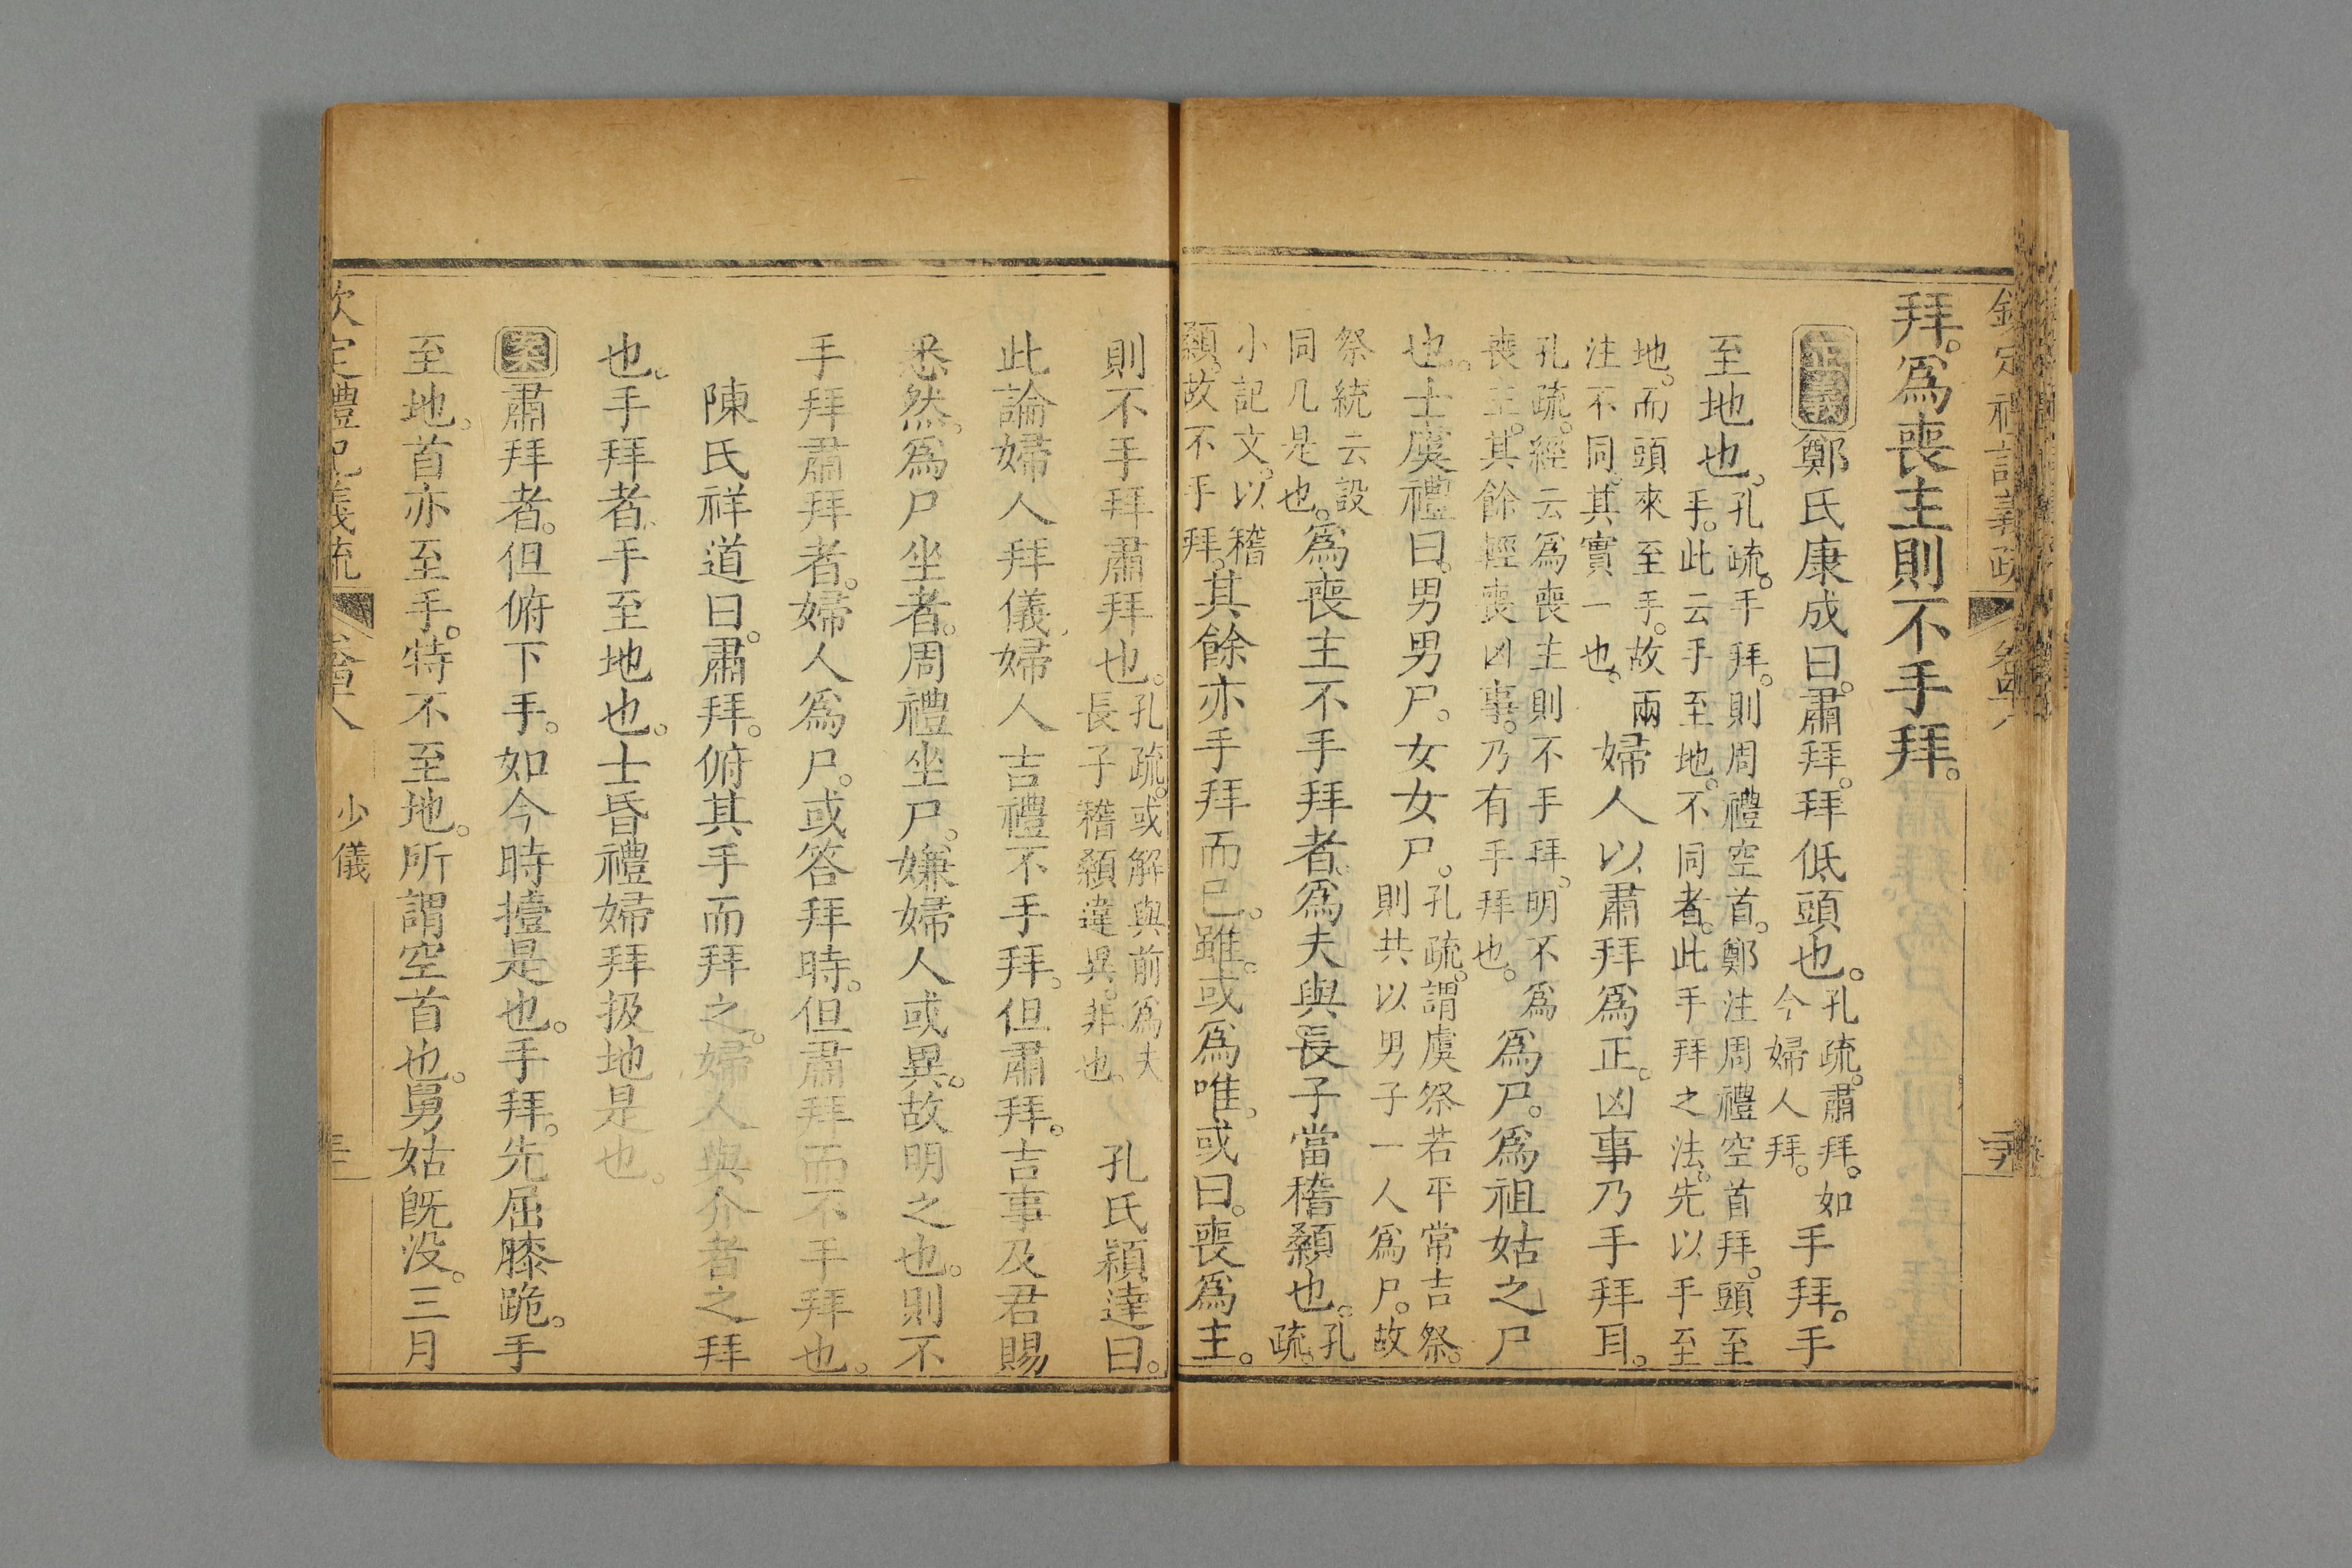 拜。爲喪主則不手拜。
正義鄭氏康成曰。肅拜。拜低頭也。孔疏。肅拜。如今婦人拜。手拜。手
至地也。孔疏。手拜。則周禮空首。鄭注周禮空首拜。頭至手。此云手至地。不同者。此手。拜之法。先以手至
地。而頭來至手。故兩注不同。其實一也。婦人以肅拜爲正。凶事乃手拜耳。
孔疏。經云爲喪主則不手拜。明不爲喪主。其餘輕喪凶事。乃有手拜也。爲尸。爲祖姑之尸
也。士虞禮曰。男男尸。女女尸。孔疏。謂虞祭若平常吉祭。則共以男子一人爲尸。故
祭統云設同几是也。爲喪主不手拜者。爲夫與長子當稽顙也。孔疏。
小記文。以稽顙。故不手拜。其餘亦手拜而已。雖。或爲唯。或曰。喪爲主。
則不手拜肅拜也。孔疏。或解與前爲夫長子稽顙違異。非也。孔氏穎達曰。
此論婦人拜儀。婦人吉禮不手拜。但肅拜。吉事及君賜
悉然。爲尸坐者。周禮坐尸。嫌婦人或異。故明之也。則不
手拜肅拜者。婦人爲尸。或答拜時。但肅拜而不手拜也。
陳氏祥道曰。肅拜。俯其手而拜之。婦人與介者之拜
也。手拜者。手至地也。士昏禮婦拜扱地是也。
案肅拜者。但俯下手。如今時撎是也。手拜。先屈膝跪。手
至地。首亦至手。特不至地。所謂空首也。舅姑既没。三月
欽定禮記義疏
少儀